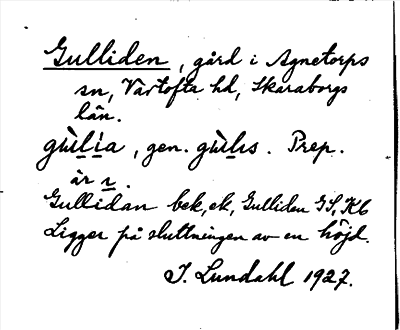 Gulliden, gård i Agnetorps
sn, Vartofta hd, Skaraborgs
län.
gùlìa, gen. gùlıs. Prep.
är ı.
Gullidan bek, ek, Gulliden GS, Kb
Ligger på sluttningen av en höjd.
I. Lundahl 1927.